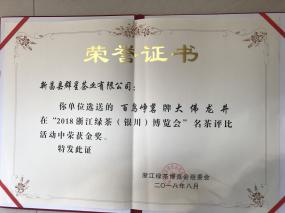 荣誉证书
新昌县群星茶业有限公司:
你单位选送的 百岛峰 牌大佛龙井
在“2018浙江绿茶(银川)博览会”名茶评比
活动中荣获金奖。
特发此证
浙江绿茶博览会组委会
二〇一八年八月